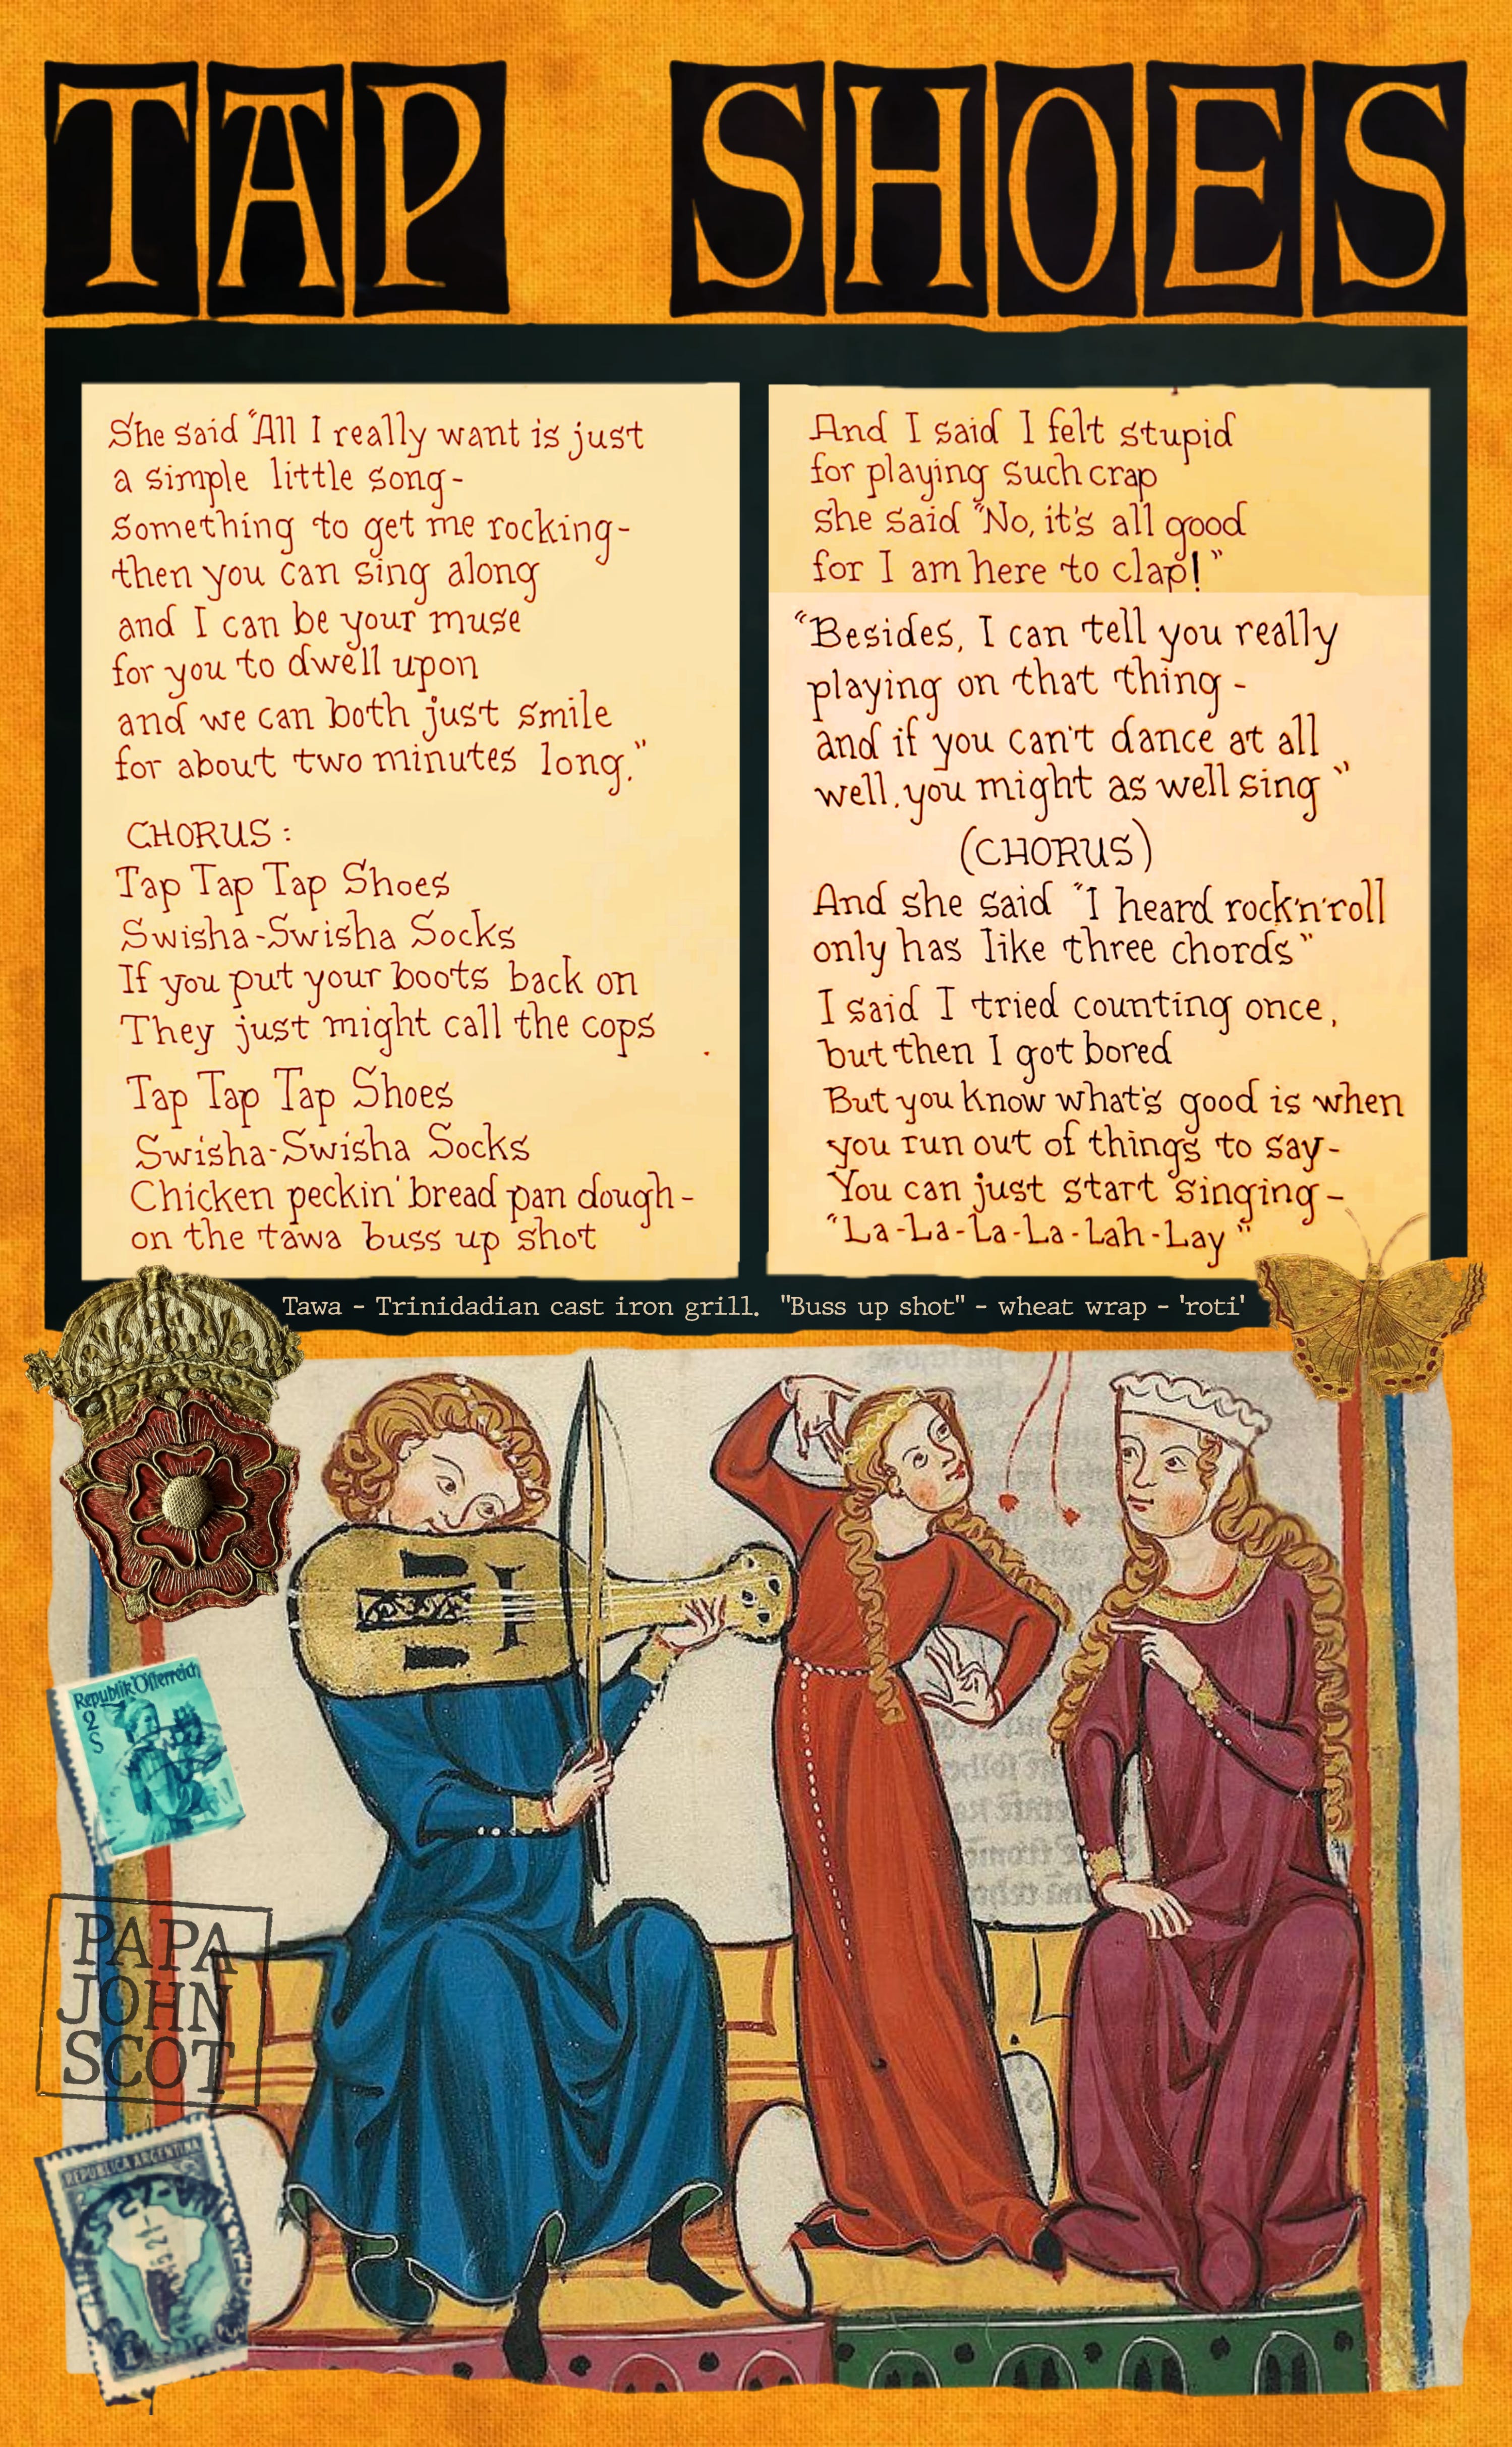 TAP SHOES
She said "All I really want is just
a simple little song-
Something to get me rocking-
then you can sing along
and I can be your muse
for you to dwell upon
and we can both just smile
for about two minutes long."
CHORUS:
Tap Tap Tap Shoes
Swisha-Swisha Socks
If you put your boots back on
They just might call the cops
Tap Tap Tap Shoes
Swisha-Swisha Socks
Chicken peckin' bread pan dough-
on the tawa buss up shot
And I said I felt stupid
for playing such crap
she said "No, it's all good
for I am here to clap!"
"Besides, I can tell you really
playing on that thing-
and if you can't dance at all
well, you might as well sing"
(CHORUS)
And she said "I heard rock'n'roll
only has like three chords"
I said I tried counting once,
but then I got bored
But you know what's good is when
you run out of things to say-
You can just start singing-
"La-La-La-La-Lah-Lay"
Tawa - Trinidadian cast iron grill. "Buss up shot" - wheat wrap - 'roti'
Republik Österreich
2
S
PAPA
JOHN
SCOT
REPUBLICA ARGENTINA